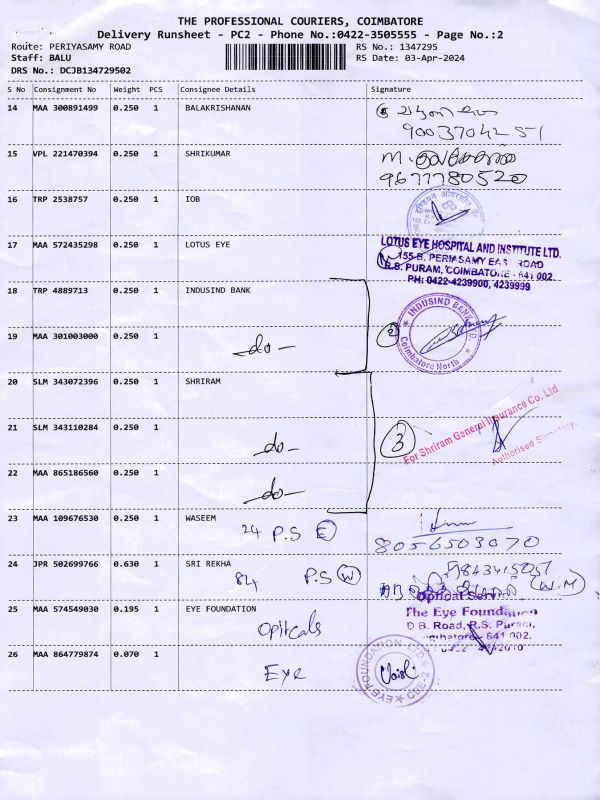 THE PROFESSIONAL COURIERS, COIMBATORE
Delivery Runsheet - PC2 - Phone No.:0422-3505555 - Page No.:2
Route: PERIYASAMY ROAD
RS No.: 1347295
Staff: BALU
RS Date: 03-Apr-2024
DRS No.: DCJB134729502
S No Consignment No Weight PCS Consignee Details Signature
14 MAA 300891499 0.250 1 BALAKRISHANAN
9003704251
15 VPL 221470394 0.250 1 SHRIKUMAR
9677780520
16 TRP 2538757 0.250 1 IOB
17 MAA 572435298 0.250 1 LOTUS EYE
LOTUS EYE HOSPITAL AND INSTITUTE LTD.
155-B, PERIASAMY EAST ROAD
R.S. PURAM, COIMBATORE - 641 002.
PH: 0422-4239900, 4239999
18 TRP 4889713 0.250 1 INDUSIND BANK
INDUSIND BANK LTD. Coimbatore North
19 MAA 301003000 0.250 1
-do- 2
20 SLM 343072396 0.250 1 SHRIRAM
For Shriram General Insurance Co. Ltd
Authorised Signatory.
21 SLM 343110284 0.250 1
-do- 3
22 MAA 865186560 0.250 1
-do-
23 MAA 109676530 0.250 1 WASEEM
24 P.S E
8056503070
24 JPR 502699766 0.630 1 SRI REKHA
84 P.S W
9843415051
(W.M)
25 MAA 574549030 0.195 1 EYE FOUNDATION
Opticals
Optical Serv
The Eye Foundation
D B. Road, R.S. Puram,
mbatore - 641 002.
26 MAA 864779874 0.070 1
Eye
EYE FOUNDATION LTD CBE-2